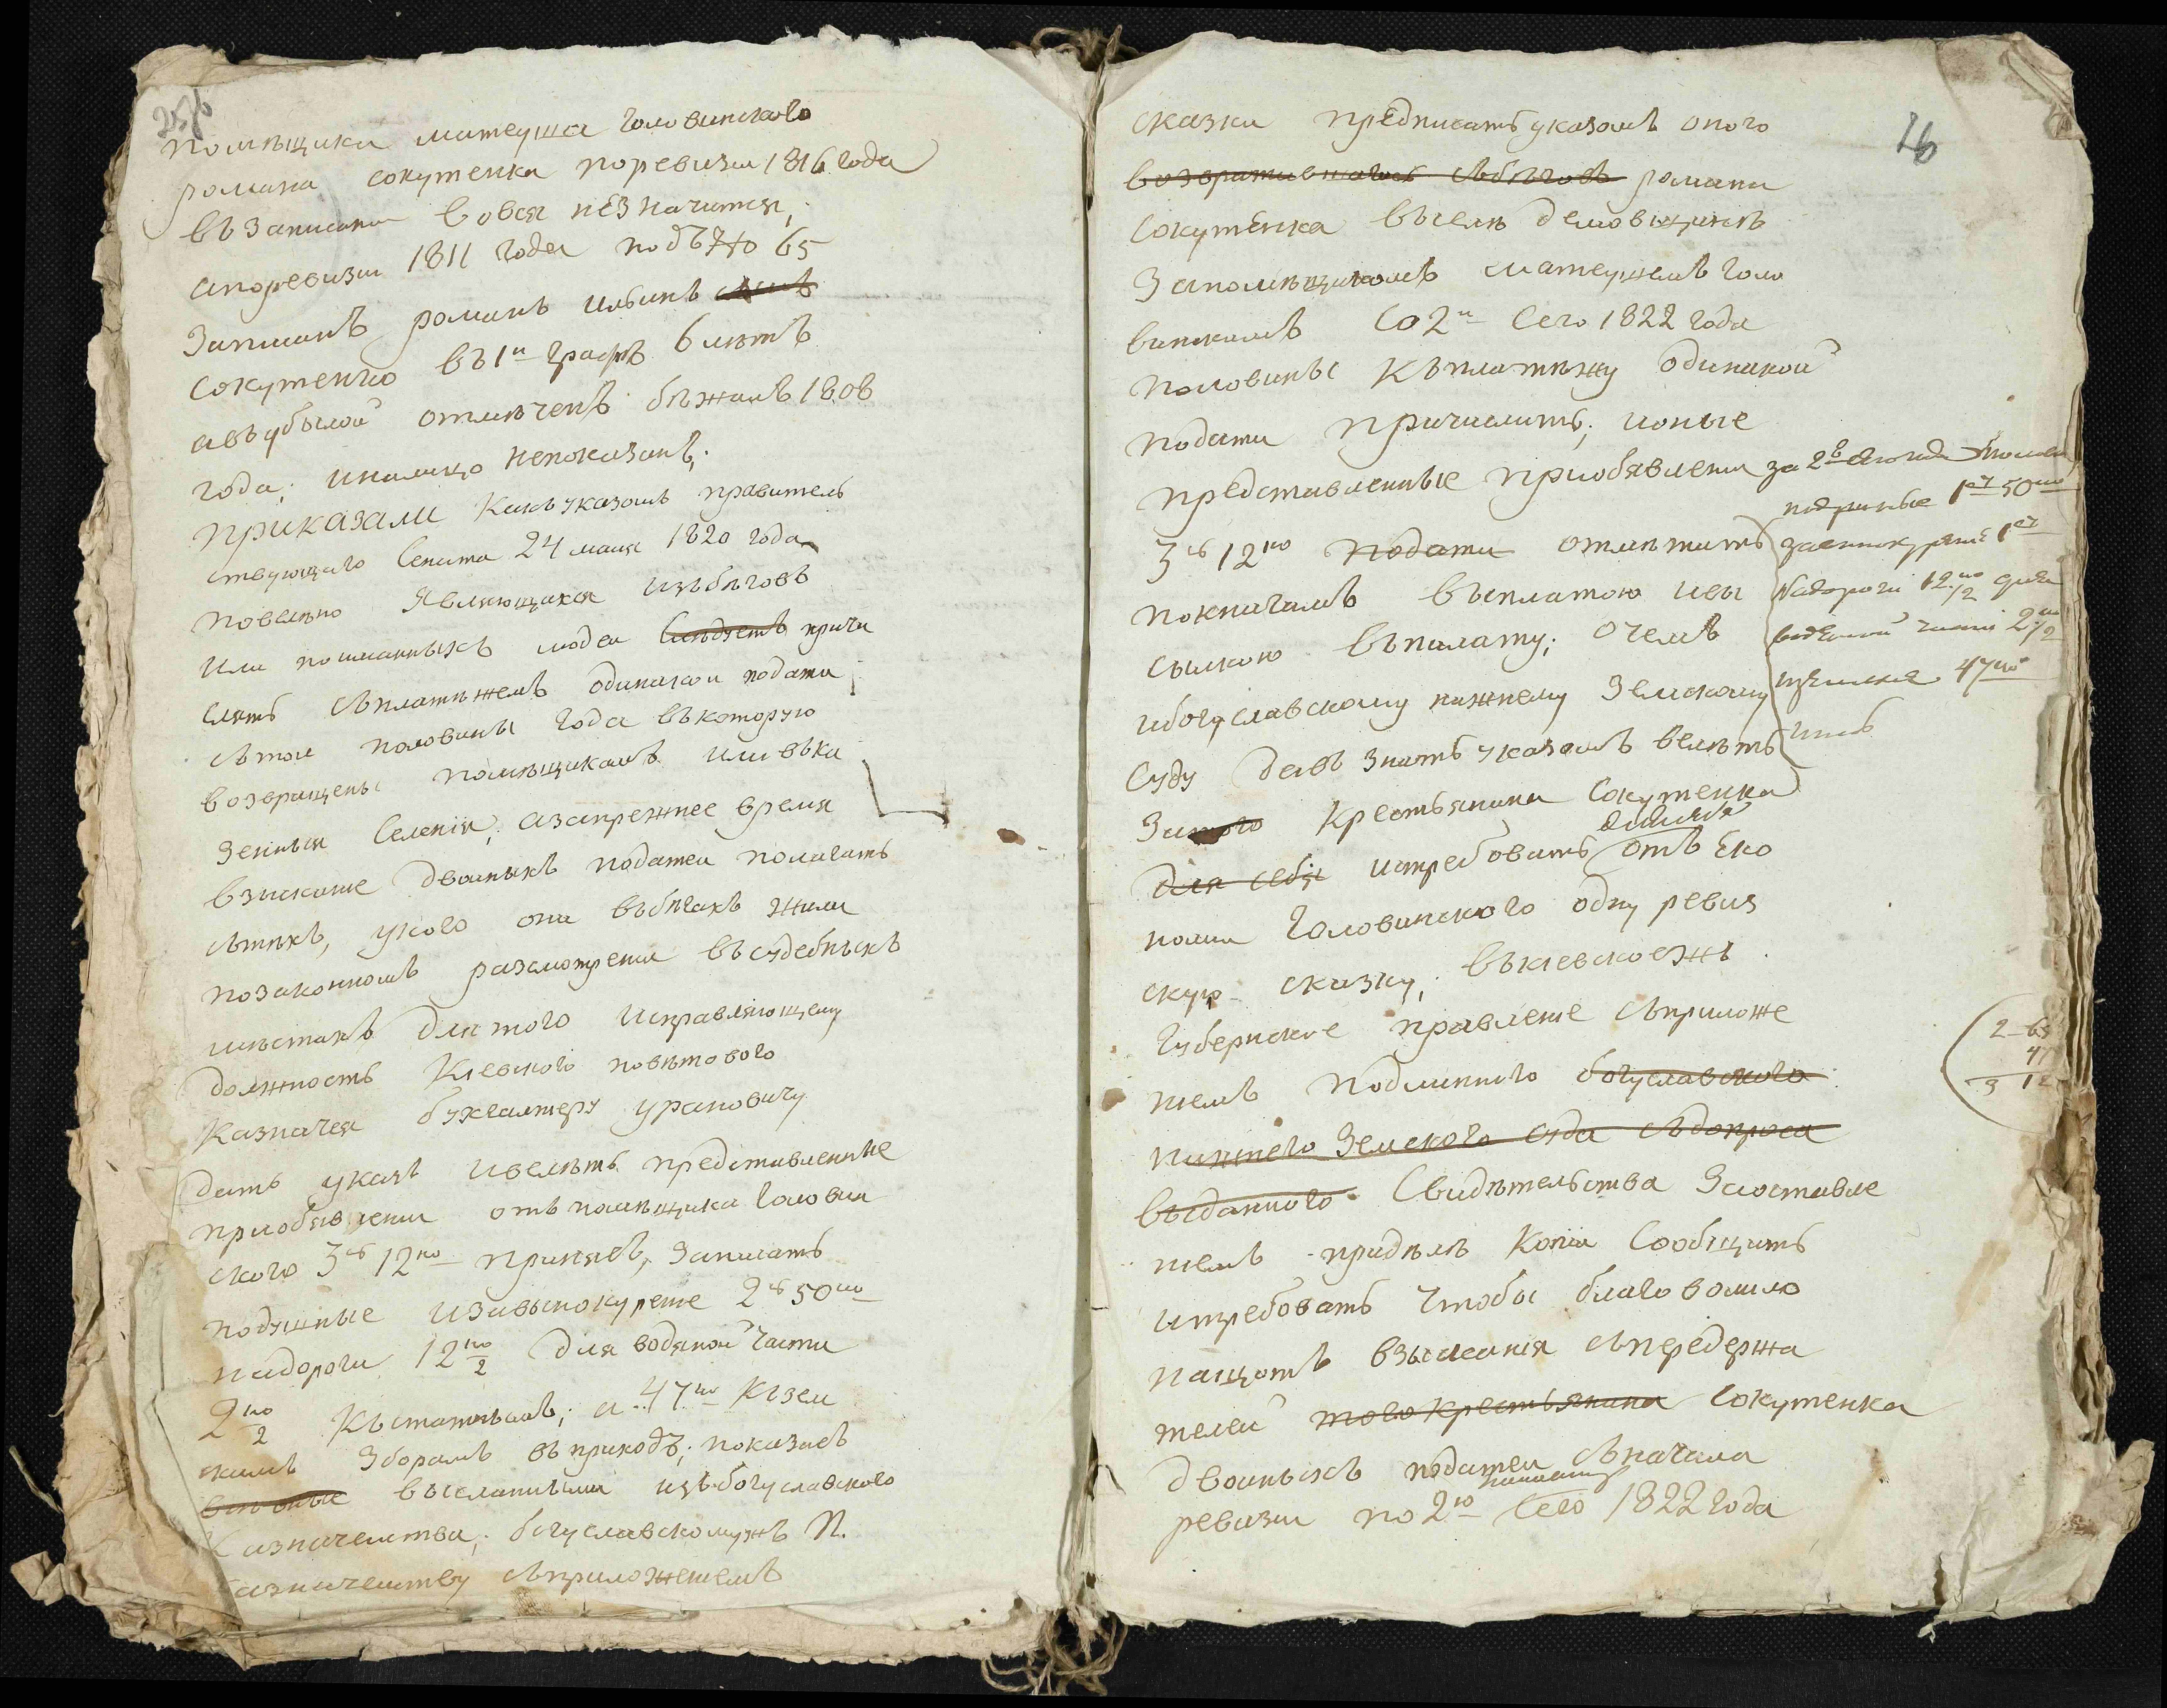 помѣщика матеуша головинского
романа сокутенка поревизи 1816 года
въ записании вовся незначится,
апоревизи 1811 года подъ № 65
Записанъ романъ ильинъ сынъ
сокутенко въ 1й графѣ 6 лѣтъ
авъ убылой отмѣченъ бѣжалъ 1808
года; иналицо непоказанъ;
приказали Какъ указомъ правитель
ствующаго Сената 24 мая 1820 года
повелѣно Являющихся изъ бѣговъ
или пойманныхъ людей Слѣдуетъ причи
слять съплатежемъ одинакой подати
сътой половины года въкоторую
возвращены помѣщикамъ или въка
зенныя Селенія; азапрежнее время
взыскание двойныхъ податей полагать
сътѣхъ, укого они въбѣгахъ жили
позаконномъ разсмотрени въсудебныхъ
мѣстахъ для того Исправляющему
должность Кіевского повѣтового
Казначея бухгалтеру урановичу
дать указъ Ивелѣть представленные
приобявлени отъ помѣщика Голови
ского 3 ру 12 ко принявъ, Записать
подушные изавинокурение 2 ру 50 ко
надороги 12 ко/2 для водяной части
2 ко/2 Къстатьямъ; а 47 ко Кзем
скимъ Зборамъ въприходъ; показавъ
высланными изъбогуславского
Казначейства; богуславскомужъ П.
казначейству съприложениемъ
26
сказки предписать указомъ оного
возвратившагося сбѣговъ романа
Сокутенка въселѣ демовщинѣ
Запомѣщикомъ матеушемъ голо
винскимъ Со 2й Сего 1822 года
половины Къплатежу одинакой
подати причислить; ионые
представленные приобявлени
3 ру 12 ко подати отмѣтить
покнигамъ въплатою ивы
сылкою въпалату; очемъ
ибогуславскому нижнему Земскому
Суду давъ знать указомъ велѣть
За Крестьянина Сокутенка
для себя истребовать отъ Еко
номи Головинского одну ревиз
скую сказку; въкіевскоежъ
Губернское правление съприложе
ниемъ подлинного богуславского
нижнего Земского суда съдопроса
выданного Свидѣтельства Заоставле
ниемъ придѣлѣ Копіи Сообщить
итребовать Чтобы благоволило
нащотъ взысканія съпередержа
телей того крестьянина сокутенка
двойныхъ податей съначала
ревизи по 2ю Сего 1822 года
половину
за 2ю
1 ру 50 ко
1 ру
Надороги 12 ко/2 для
водяной части 2 ко/2
47 ко
2 65
47
3 12